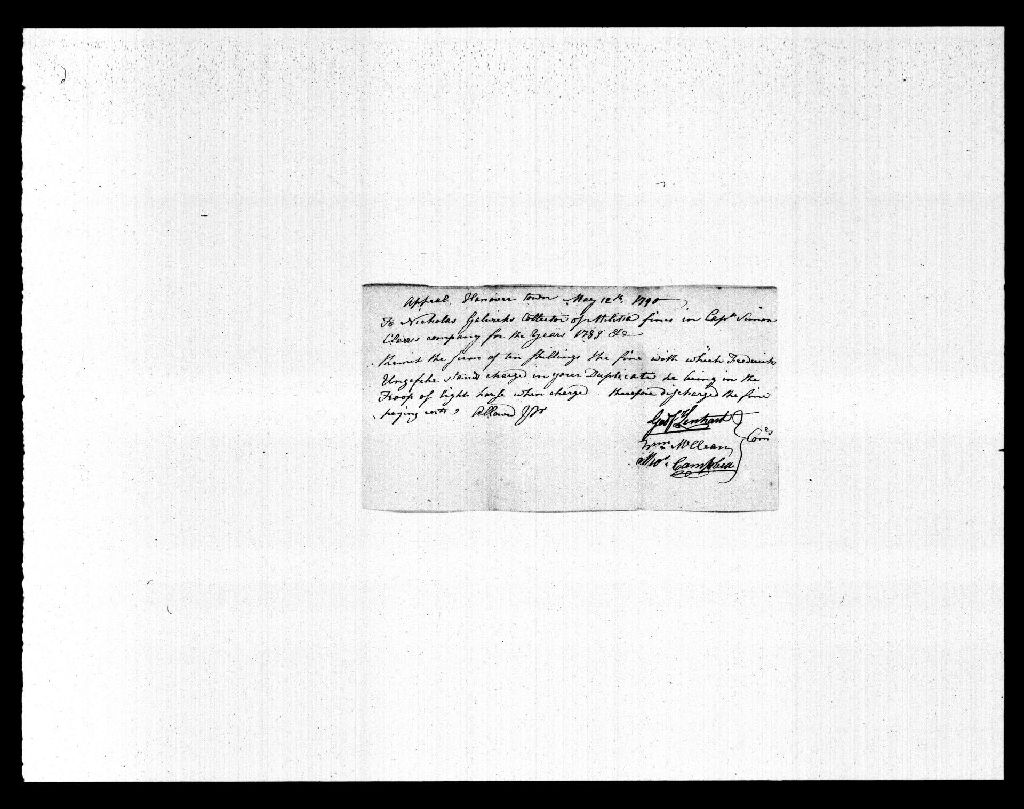 Appeal Hanover town May 12th 1790
To Nicholas Gelwicks Collector of Militia fines in Capt. Simon
Clears company for the Years 1789 &c
Remit the sum of ten shillings the fine with which Frederick
stands charged in your Duplicate he being in the
Troop of light horse when charged therefore discharged the fine
paying costs
Godf. Lenhart
Wm. McClean
Mos. Campbell
Coms